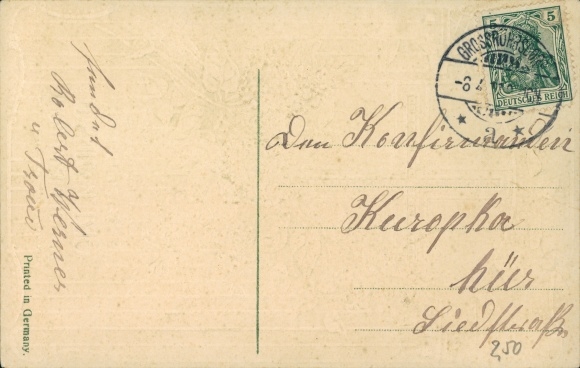 sendet
Robert Werner
u Frau
Printed in Germany.
GROSSRÖHRSDORF
-8.4.
* a *
5 5
DEUTSCHES REICH
Den Konfirmanden
Kuropka
hier
Siedstraße
2,50